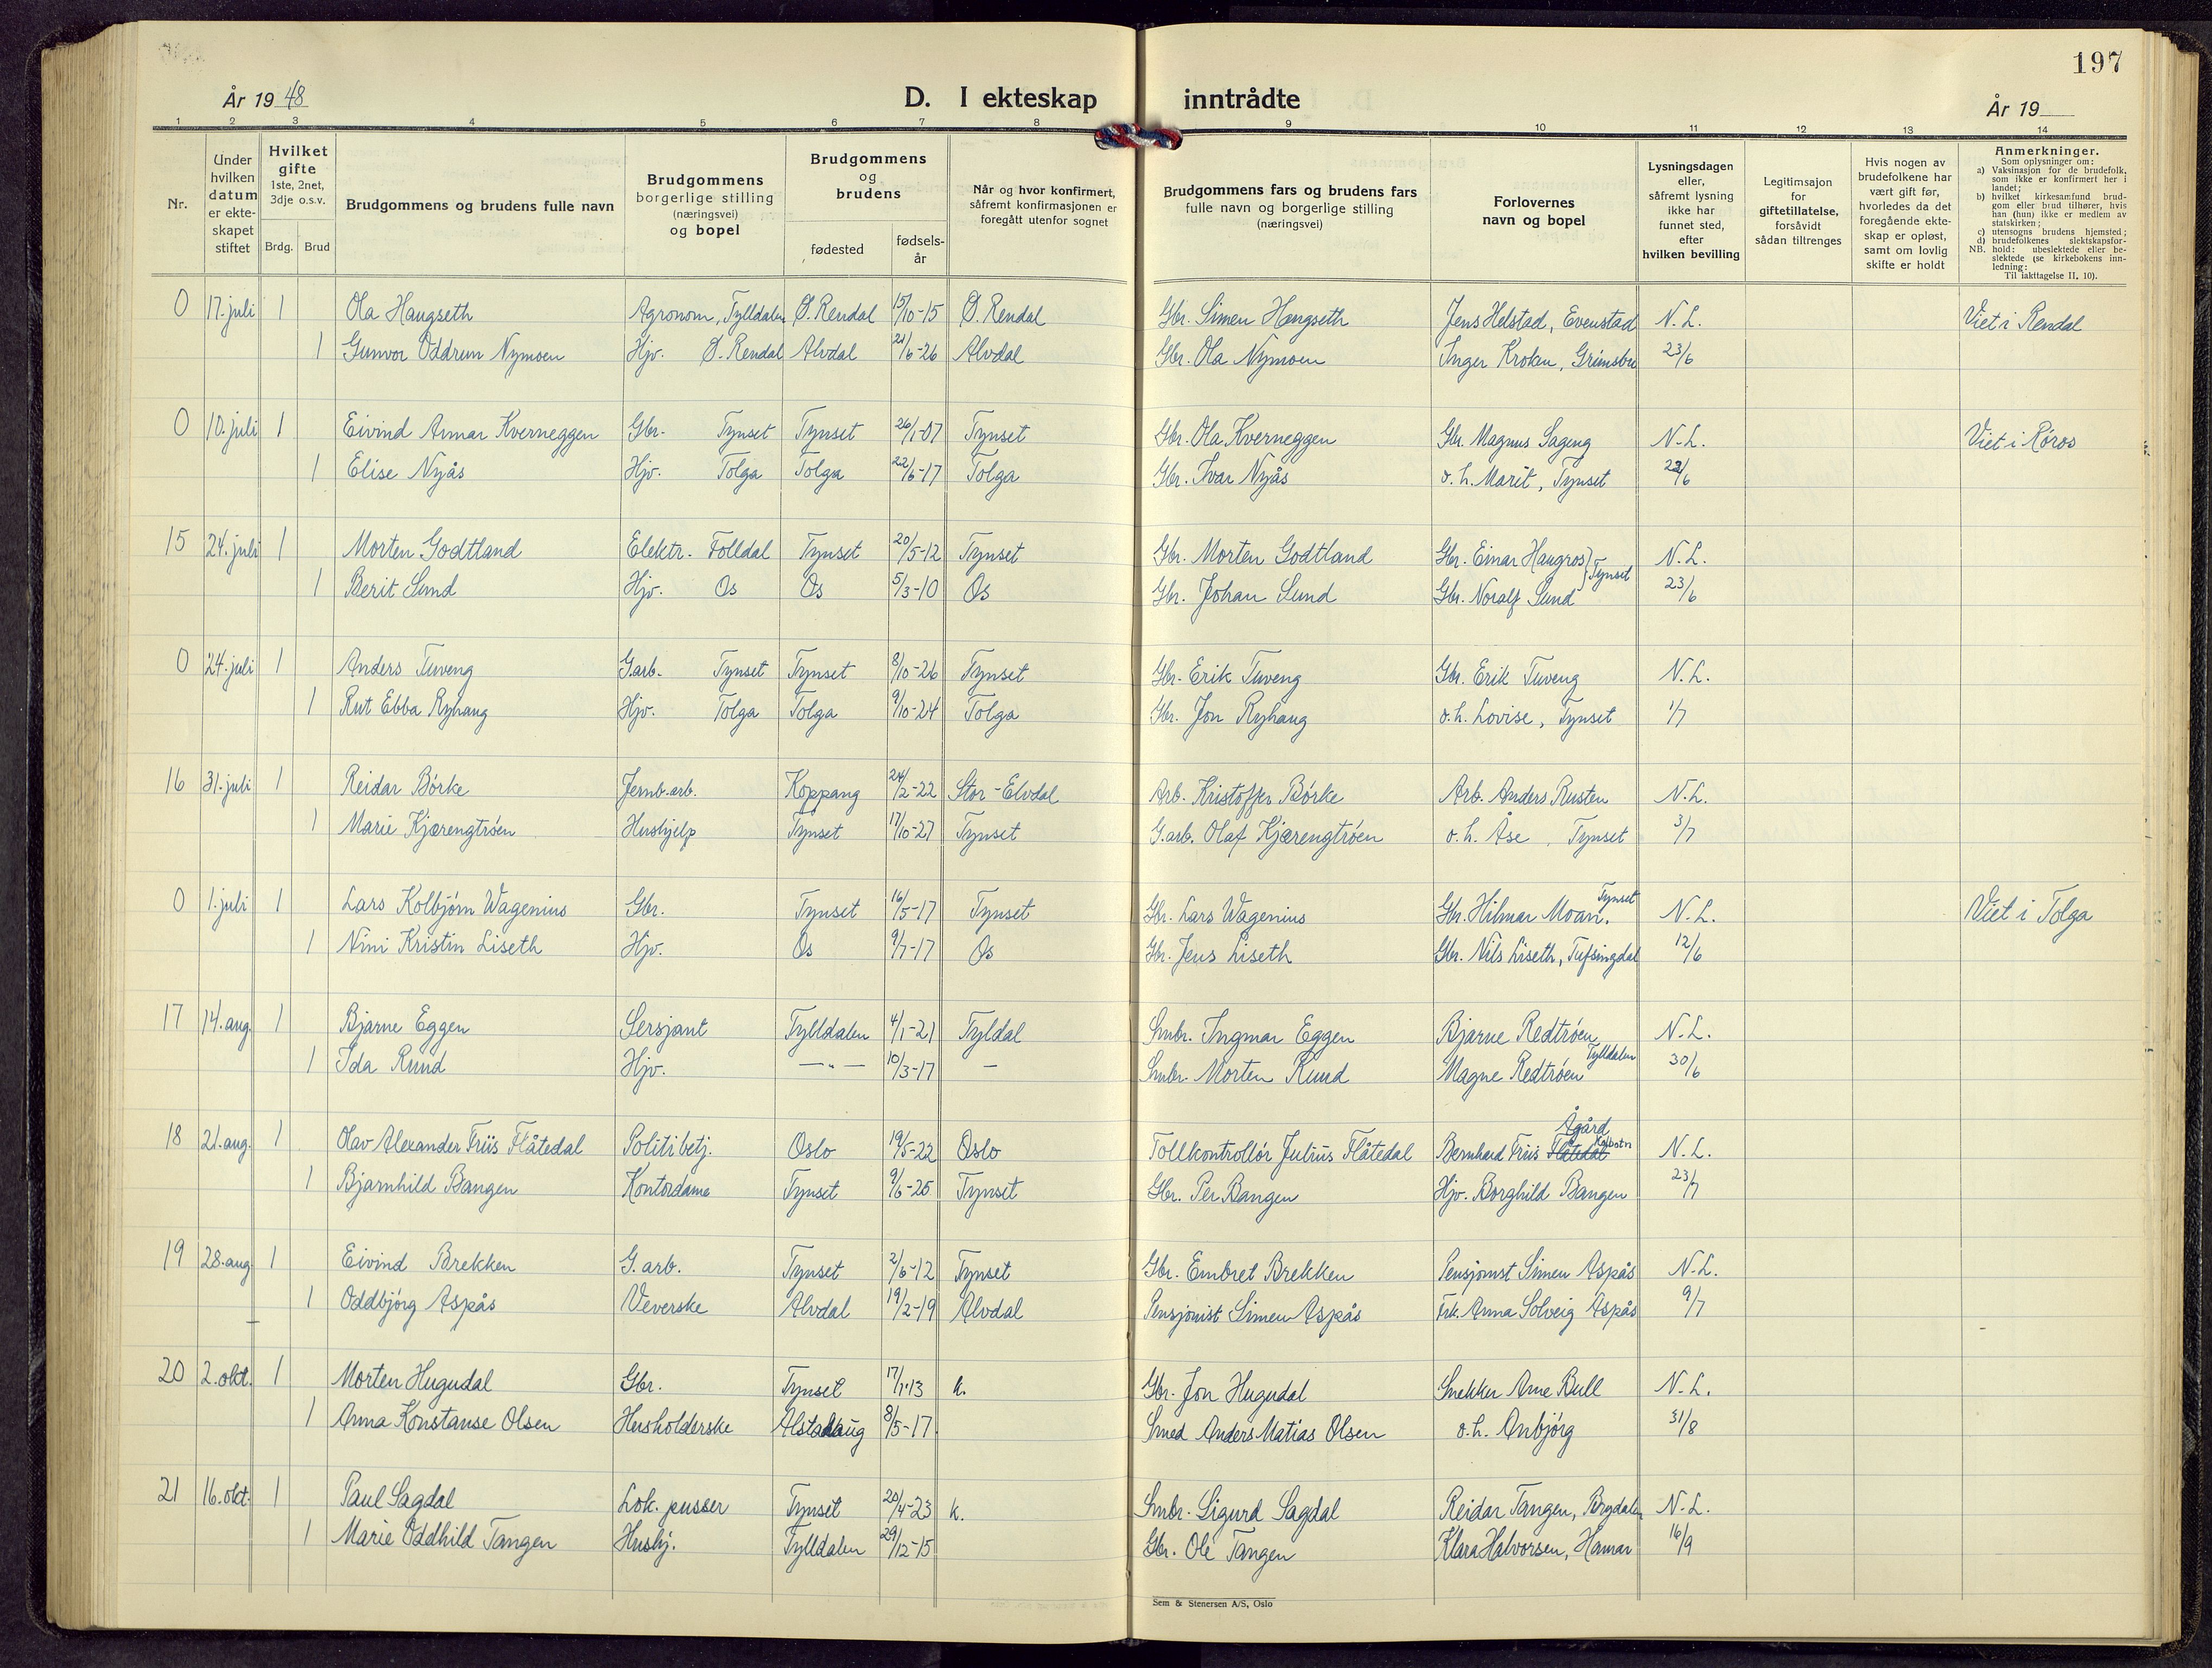 197
År 1948
D. I ekteskap inntrådte
År 19
1 2 3 4 5 6 7 8 9 10 11 12 13 14
Nr.
Under hvilken datum er ekte-skapet stiftet
Hvilket gifte 1ste, 2net, 3dje o.s.v.
Brdg. Brud
Brudgommens og brudens fulle navn
Brudgommens borgerlige stilling (næringsvei) og bopel
Brudgommens og brudens
fødested
fødsels-år
Når og hvor konfirmert, såfremt konfirmasjonen er foregått utenfor sognet
Brudgommens fars og brudens fars fulle navn og borgerlige stilling (næringsvei)
Forlovernes navn og bopel
Lysningsdagen eller, såfremt lysning ikke har funnet sted, efter hvilken bevilling
Legitimsajon for giftetillatelse, forsåvidt sådan tiltrenges
Hvis nogen av brudefolkene har vært gift før, hvorledes da det foregående ekte-skap er opløst, samt om lovlig skifte er holdt
Anmerkninger.
Som oplysninger om:
a) Vaksinasjon for de brudefolk, som ikke er konfirmert her i landet;
b) hvilket kirkesamfund brud-gom eller brud tilhører, hvis han (hun) ikke er medlem av statskirken;
c) utensogns brudens hjemsted;
d) brudefolkenes slektskapsfor-hold: ubeslektede eller be-slektede (se kirkebokens inn-ledning:
NB.
Til iakttagelse II, 10).
0 17. juli 1 Ola Haugseth Agronom, Tylldalen Ø. Rendal 15/10-15 Ø. Rendal Gbr. Simen Haugseth Jens Helstad, Evenstad N.L. Viet i Rendal
1 Gunvor Oddrun Nymoen Hjv. Ø. Rendal Alvdal 21/6-26 Alvdal Gbr. Ola Nymoen Inger Kroken, Grimsbu 23/6
0 10. juli 1 Eivind Annar Kverneggen Gbr. Tynset Tynset 26/1-07 Tynset Gbr. Ola Kverneggen Gbr. Magnus Sageng N.L. Viet i Røros
1 Elise Nyås Hjv. Tolga Tolga 22/6-17 Tolga Gbr. Ivar Nyås o.h. Marit, Tynset
15 24. juli 1 Morten Godtland Elektr. Folldal Tynset 20/5-12 Tynset Gbr. Morten Godtland Gbr. Einar Haugros } Tynset N.L.
1 Berit Lund Hjv. Os Os 5/3-10 Os Gbr. Johan Lund Gbr. Noralf Lund 23/6
0 24. juli 1 Anders Tuveng G.arb. Tynset Tynset 8/10-26 Tynset Gbr. Erik Tuveng Gbr. Erik Tuveng N.L.
1 Rut Ebba Ryhaug Hjv. Tolga Tolga 9/10-24 Tolga Gbr. Jon Ryhaug o.h. Lovise, Tynset 1/7
16 31. juli 1 Reidar Børke Jernb.arb. Koppang 24/2-22 Stor-Elvdal Arb. Kristoffer Børke Arb. Anders Rusten N.L.
1 Marie Kjærengtrøen Hushjelp Tynset 17/10-27 Tynset G.arb. Olaf Kjærengtrøen o.h. Åse, Tynset 3/7
0 1. juli 1 Lars Kolbjørn Wagenius Gbr. Tynset 16/5-17 Tynset Gbr. Lars Wagenius Gbr. Hilmar Moan, Tynset N.L. Viet i Tolga
1 Nini Kristin Liseth Hjv. Os 9/7-17 Os Gbr. Jens Liseth Gbr. Nils Liseth, Tufsingdal 12/6
17 14. aug. 1 Bjarne Eggen Sersjant Tylldalen 4/1-21 Tyldal Smbr. Ingmar Eggen Bjarne Redtrøen N.L.
1 Ida Ruud Hjv. —"— 10/3-17 — Smbr. Morten Ruud Magne Redtrøen Tylldalen 30/6
18 21. aug. 1 Olav Alexander Friis Flåtedal Politibetj. Oslo 19/5-22 Oslo Tollkontrollør Julius Flåtedal Bernhard Friis Flåtedal Ågård Kolbotn N.L.
1 Bjarnhild Bangen Kontordame Tynset 9/6-25 Tynset Gbr. Per Bangen Hjv. Borghild Bangen 23/7
19 28. aug 1 Eivind Brekken G.arb. Tynset 2/6-12 Tynset Gbr. Embret Brekken Pensjonist Simen Aspås N.L.
1 Oddbjørg Aspås Veverske Alvdal 19/2-19 Alvdal Pensjonist Simen Aspås Frk. Anna Solveig Aspås 9/7
20 2. okt. 1 Morten Hugudal Gbr. Tynset 17/1-13 k. Gbr. Jon Hugudal Snekker Arne Bull N.L.
1 Anna Konstanse Olsen Husholderske Alstahaug 8/5-17 Smed Anders Matias Olsen o.h. Anbjørg 31/8
21 16. okt. 1 Paul Sagdal Lok. pusser Tynset 20/4-23 k. Smbr. Sigurd Sagdal Reidar Tangen, N.L.
1 Marie Oddhild Tangen Hushj. Tylldalen 29/12-15 Gbr. Ole Tangen Klara Halvorsen, Hamar 16/9
Sem & Stenersen A/S, Oslo